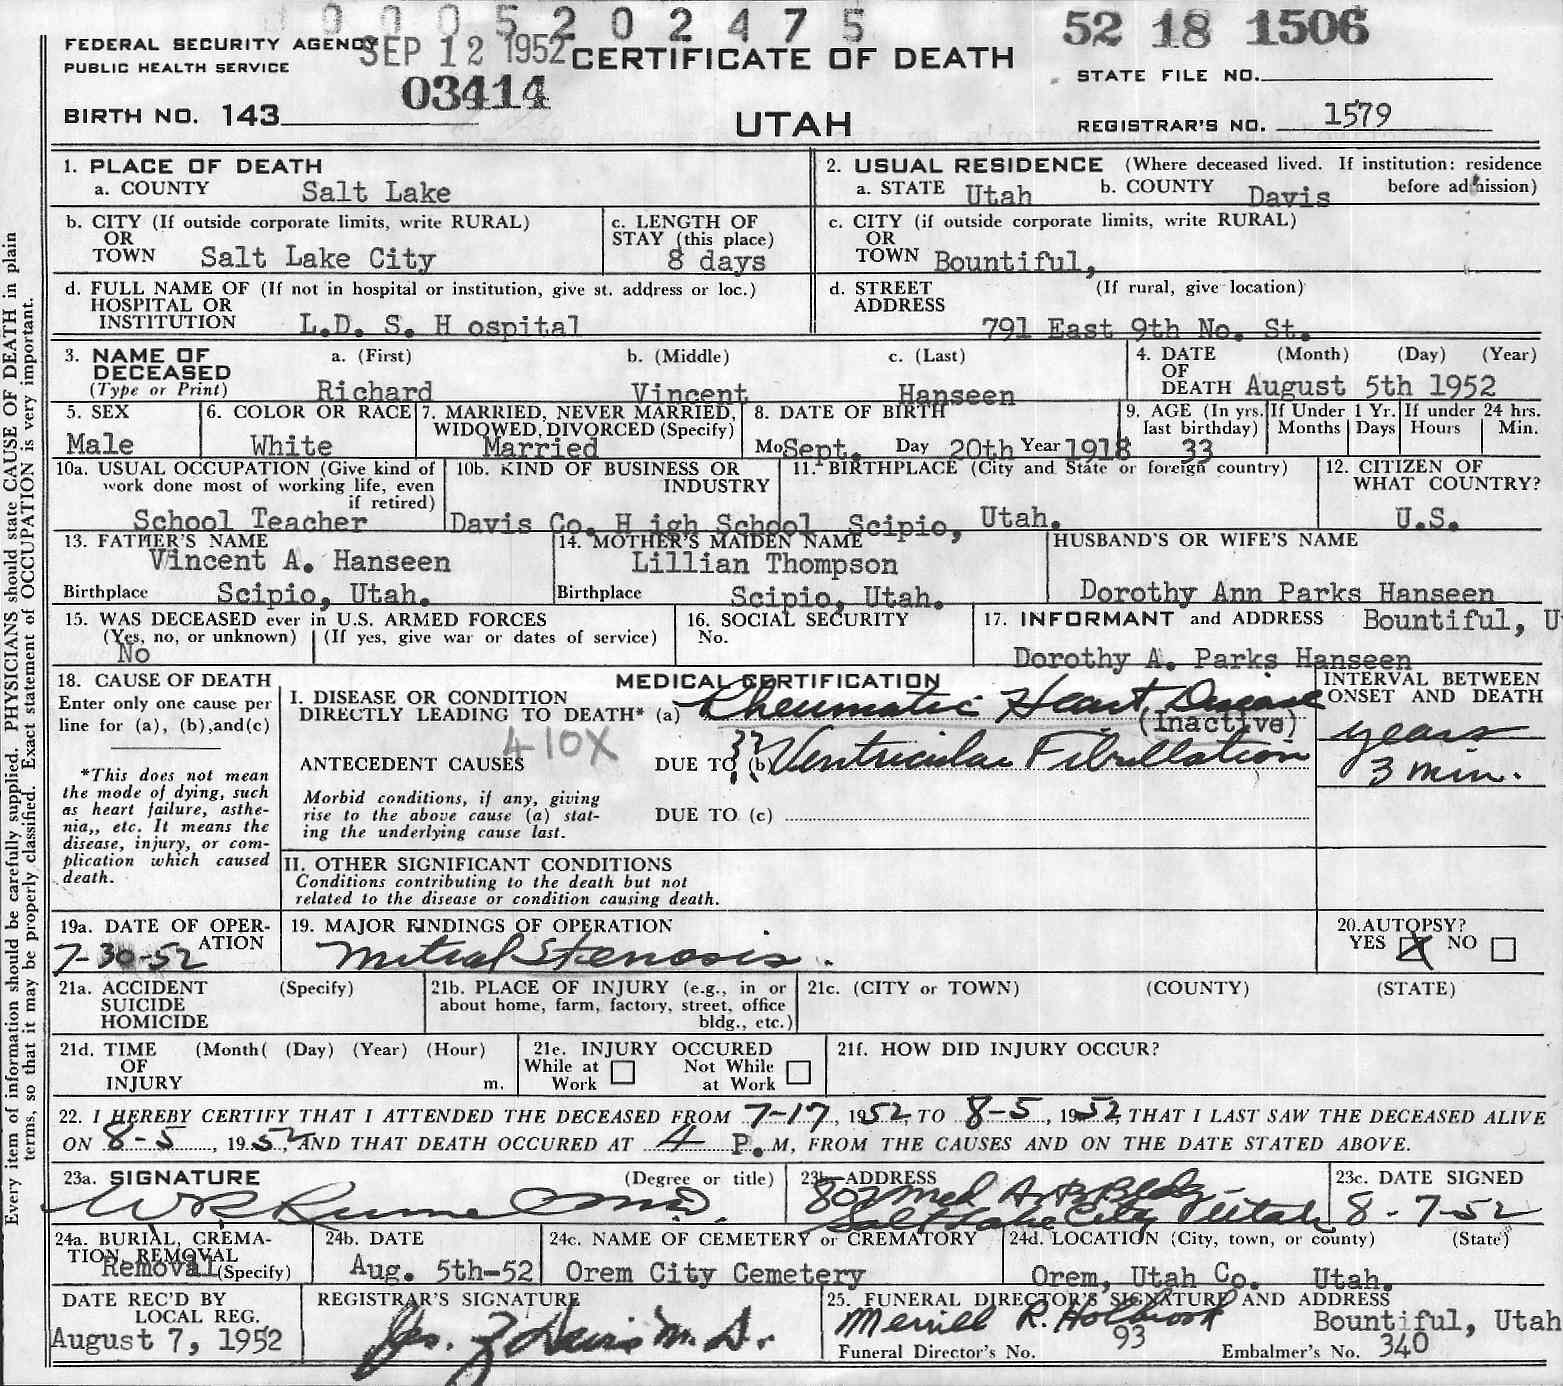 0 0 0 5 2 0 2 4 7 5
52 18 1506
FEDERAL SECURITY AGENCY
PUBLIC HEALTH SERVICE
SEP 12 1952
CERTIFICATE OF DEATH
STATE FILE NO.
03414
BIRTH NO. 143
UTAH
REGISTRAR'S NO. 1579
1. PLACE OF DEATH
a. COUNTY Salt Lake
2. USUAL RESIDENCE (Where deceased lived. If institution: residence before admission)
a. STATE Utah b. COUNTY Davis
b. CITY (If outside corporate limits, write RURAL)
OR
TOWN Salt Lake City
c. LENGTH OF
STAY (this place)
8 days
c. CITY (if outside corporate limits, write RURAL)
OR
TOWN Bountiful,
d. FULL NAME OF (If not in hospital or institution, give st. address or loc.)
HOSPITAL OR
INSTITUTION L.D. S. H ospital
d. STREET (If rural, give location)
ADDRESS
791 East 9th No. St.
3. NAME OF DECEASED (Type or Print)
a. (First) b. (Middle) c. (Last)
Richard Vincent Hanseen
4. DATE OF DEATH (Month) (Day) (Year)
August 5th 1952
5. SEX
Male
6. COLOR OR RACE
White
7. MARRIED, NEVER MARRIED,
WIDOWED, DIVORCED (Specify)
Married
8. DATE OF BIRTH
Mo Sept. Day 20th Year 1918
9. AGE (In yrs. last birthday)
33
If Under 1 Yr.
Months Days
If under 24 hrs.
Hours Min.
10a. USUAL OCCUPATION (Give kind of
work done most of working life, even
if retired)
School Teacher
10b. KIND OF BUSINESS OR
INDUSTRY
Davis Co. H igh School
11. BIRTHPLACE (City and State or foreign country)
Scipio, Utah.
12. CITIZEN OF
WHAT COUNTRY?
U.S.
13. FATHER'S NAME
Vincent A. Hanseen
Birthplace Scipio, Utah.
14. MOTHER'S MAIDEN NAME
Lillian Thompson
Birthplace Scipio, Utah.
HUSBAND'S OR WIFE'S NAME
Dorothy Ann Parks Hanseen
15. WAS DECEASED ever in U.S. ARMED FORCES
(Yes, no, or unknown) (If yes, give war or dates of service)
No
16. SOCIAL SECURITY
No.
17. INFORMANT and ADDRESS Bountiful, U
Dorothy A. Parks Hanseen
18. CAUSE OF DEATH
Enter only one cause per
line for (a), (b),and(c)
*This does not mean
the mode of dying, such
as heart failure, asthe-
nia,, etc. It means the
disease, injury, or com-
plication which caused
death.
MEDICAL CERTIFICATION
I. DISEASE OR CONDITION
DIRECTLY LEADING TO DEATH* (a) Rheumatic Heart Disease
(Inactive)
410X
ANTECEDENT CAUSES DUE TO (b) Ventricular Fibrillation
Morbid conditions, if any, giving
rise to the above cause (a) stat-
ing the underlying cause last.
DUE TO (c)
INTERVAL BETWEEN
ONSET AND DEATH
years
3 min.
II. OTHER SIGNIFICANT CONDITIONS
Conditions contributing to the death but not
related to the disease or condition causing death.
19a. DATE OF OPER-
ATION
7-30-52
19. MAJOR FINDINGS OF OPERATION
Mitral Stenosis.
20.AUTOPSY?
YES X NO
21a. ACCIDENT (Specify)
SUICIDE
HOMICIDE
21b. PLACE OF INJURY (e.g., in or
about home, farm, factory, street, office
bldg., etc.)
21c. (CITY or TOWN) (COUNTY) (STATE)
21d. TIME (Month( (Day) (Year) (Hour)
OF
INJURY m.
21e. INJURY OCCURED
While at Work Not While at Work
21f. HOW DID INJURY OCCUR?
22. I HEREBY CERTIFY THAT I ATTENDED THE DECEASED FROM 7-17, 1952, TO 8-5, 1952, THAT I LAST SAW THE DECEASED ALIVE
ON 8-5, 1952, AND THAT DEATH OCCURED AT 4 P.M, FROM THE CAUSES AND ON THE DATE STATED ABOVE.
23a. SIGNATURE (Degree or title)
M.D.
23b. ADDRESS
Med Arts Bldg
Salt Lake City Utah
23c. DATE SIGNED
8-7-52
24a. BURIAL, CREMA-
TION, REMOVAL
(Specify)
Removal
24b. DATE
Aug. 5th-52
24c. NAME OF CEMETERY or CREMATORY
Orem City Cemetery
24d. LOCATION (City, town, or county) (State)
Orem, Utah Co. Utah.
DATE REC'D BY
LOCAL REG.
August 7, 1952
REGISTRAR'S SIGNATURE
M.D.
25. FUNERAL DIRECTOR'S SIGNATURE AND ADDRESS
Merrill R. Holbrook Bountiful, Utah
Funeral Director's No. 93 Embalmer's No. 340
Every item of information should be carefully supplied. PHYSICIANS should state CAUSE OF DEATH in plain
terms, so that it may be properly classified. Exact statement of OCCUPATION is very important.